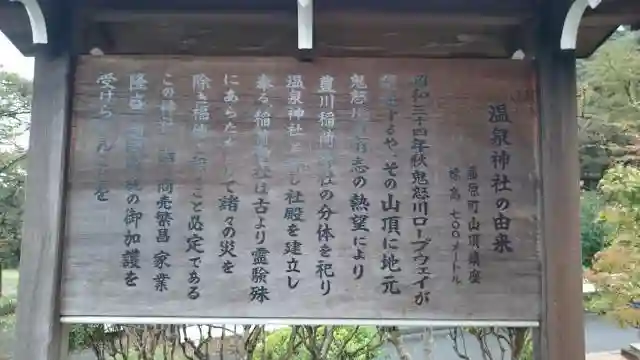 温泉神社の由来
藤原町山頂鎮座
標高 七〇〇メートル
昭和三十四年秋鬼怒川ロープウェイが
するや、その山頂に地元
鬼怒川 有志の熱望により
豊川稲荷 社の分体を祀り
温泉神社と し社殿を建立し
奉る、稲荷 社は古より霊験殊
にあらたか して諸々の災を
除き福徳 こと必定である
この 商売繁昌 家業
隆昌 の御加護を
受けられんことを